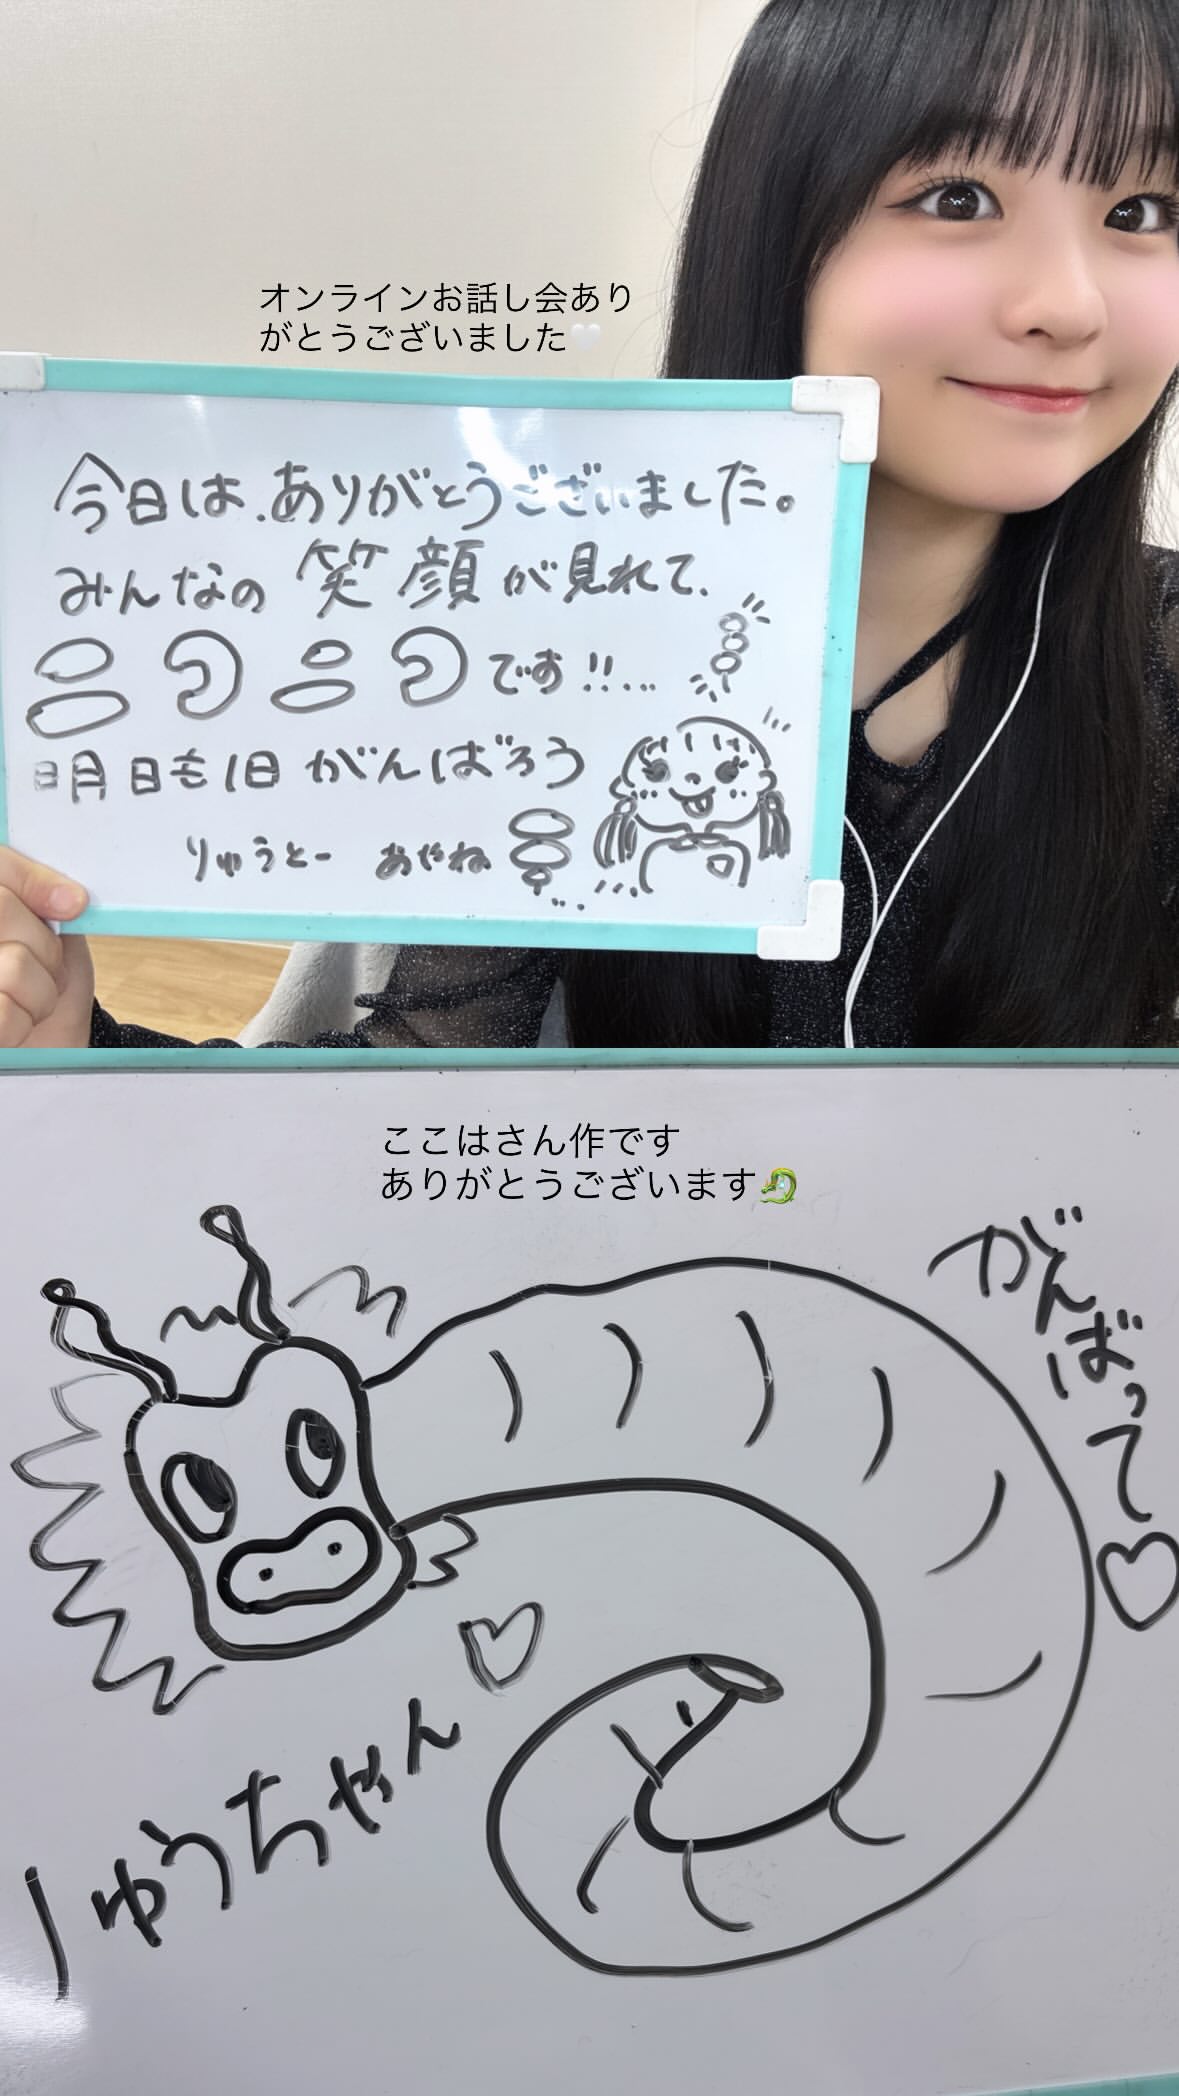 オンラインお話し会あり
がとうございました🤍
今日は、ありがとうございました。
みんなの笑顔が見れて、
ニコニコです!!...
明日も1日がんばろう
りゅうとー あやね
ここはさん作です
ありがとうございます🐉
がんばって♡
りゅうちゃん♡